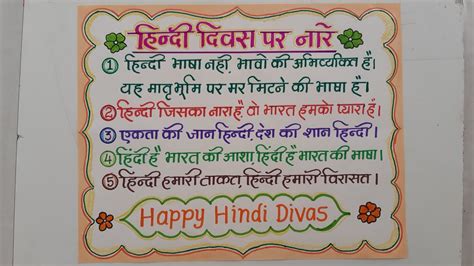 हिन्दी दिवस पर नारे
① हिन्दी भाषा नही, भावो की अभिव्यक्ति है।
यह मातृभूमि पर मर मिटने की भाषा है।
② हिन्दी जिसका नारा है, वो भारत हमको प्यारा है।
③ एकता की जान हिन्दी, देश की शान हिन्दी।
④ हिंदी है भारत की आशा, हिंदी है भारत की भाषा।
⑤ हिन्दी हमारी ताकत, हिन्दी हमारी विरासत।
Happy Hindi Divas